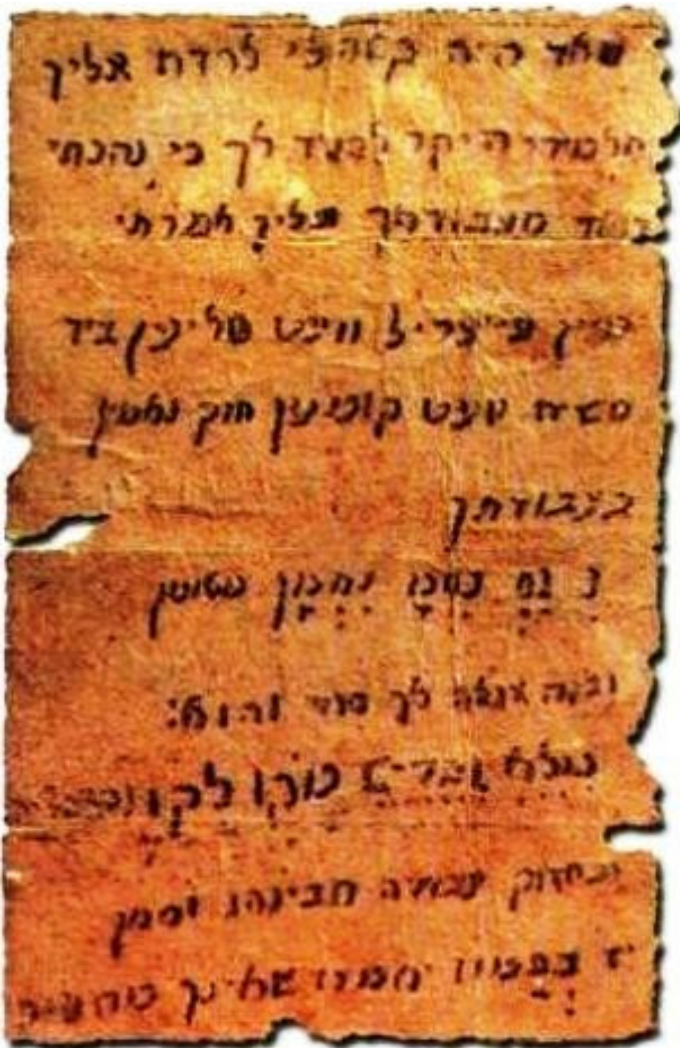 מאד היה קשה לי לרדת אליך
תלמידי היקר להגיד לך כי נהנתי
מאד מעבודתך ועליך אמרתי
מיין פייערל וועט טליען ביז
משיח וועט קומען חזק ואמץ
בעבודתך
נ נַח נַחְמָ נַחְמָן מאומן
ובזה אגלה לך סוד והוא:
מלא וגדיש מקו לקו
ובחזוק עבודה תבינהו וסימן
יז בתמוז יאמרו שאינך מתענה